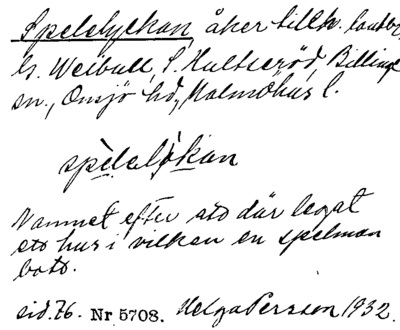 Spelelyckan, åker tillh. lantbr.
G. Weibull, S. Hultseröd, Billinge
sn., Onsjö hd, Malmöhus l.
spèlelýkan
Namnet efter att där legat
ett hus i vilken en spelman
bott.
sid. 76. Nr 5708. Helga Persson 1932.